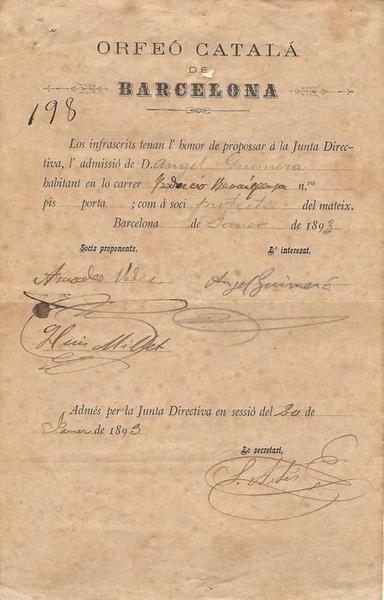 ORFEÓ CATALÁ
DE
BARCELONA
198
Los infrascrits tenan l' honor de propossar á la Junta Direc-
tiva, l' admissió de D. Angel Guimera
habitant en lo carrer Redacció Renaixensa n.ro
pis porta ; com á soci protector del mateix.
Barcelona de Janer de 1893
Socis proponents. L' interesat,
Amadeo Vives Angel Guimerá
Lluis Millet
Admés per la Junta Directiva en sessió del 20 de
Janer de 1893
Lo secretari,